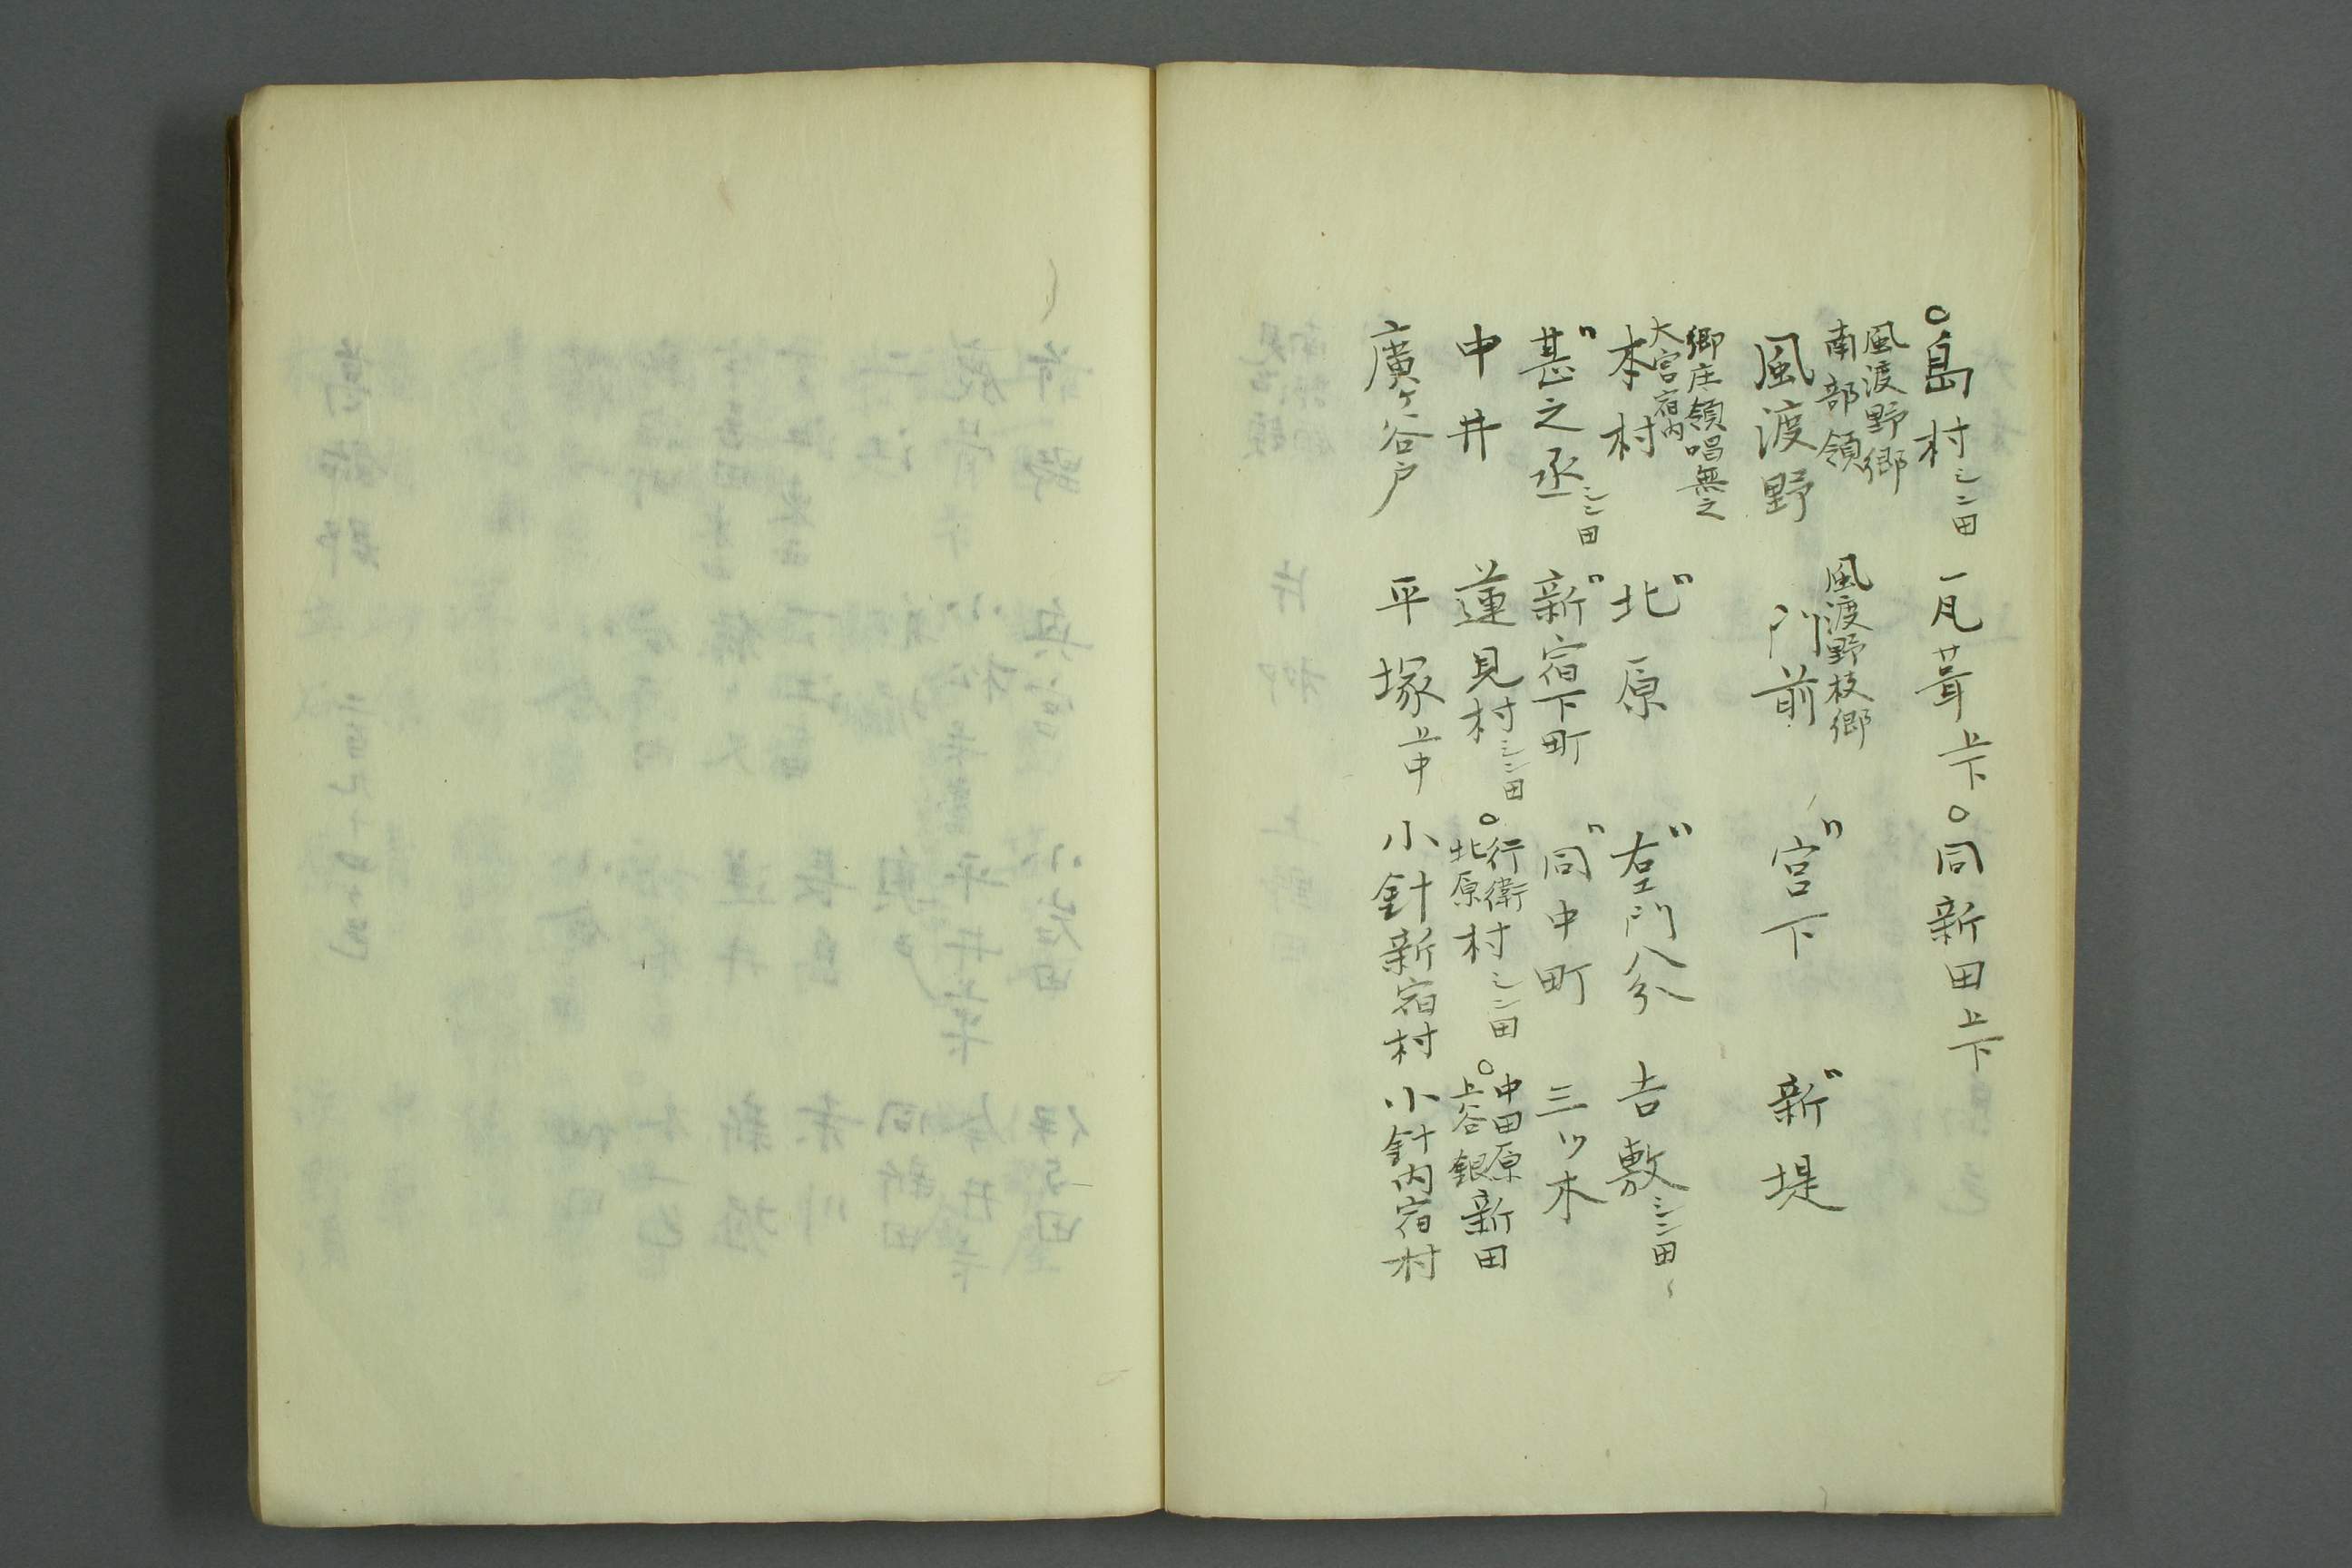 ○島村シン田　一瓦葺上下　○同新田上下
風渡野郷
南部領
風渡野
風渡野枝郷
門前　〃宮下　〃新堤
郷庄領唱無之
大宮宿内
本村　〃北原　〃右エ門八分　吉敷シン田
〃甚之丞シン田　〃新宿下町　〃同中町　三ツ木
中井　蓮見村シン田　○行衛北原村シン田　○中田原上谷銀新田
廣ケ谷戸　平塚上中　小針新宿村　小針内宿村